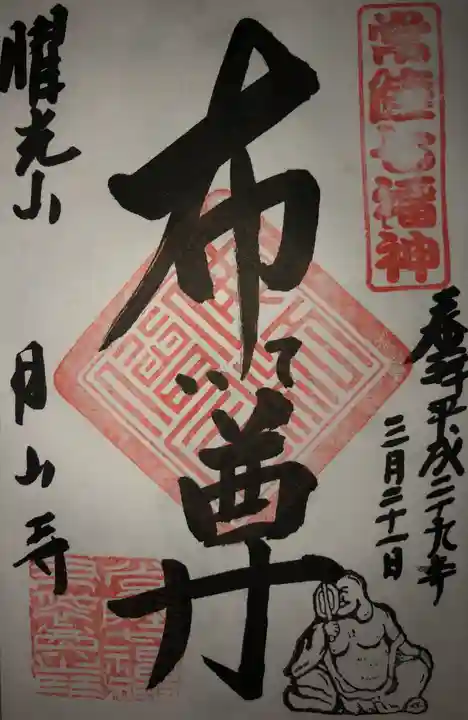 常陸七福神
奉拝平成二十九年
三月二十一日
布て尊
曜光山 月山寺